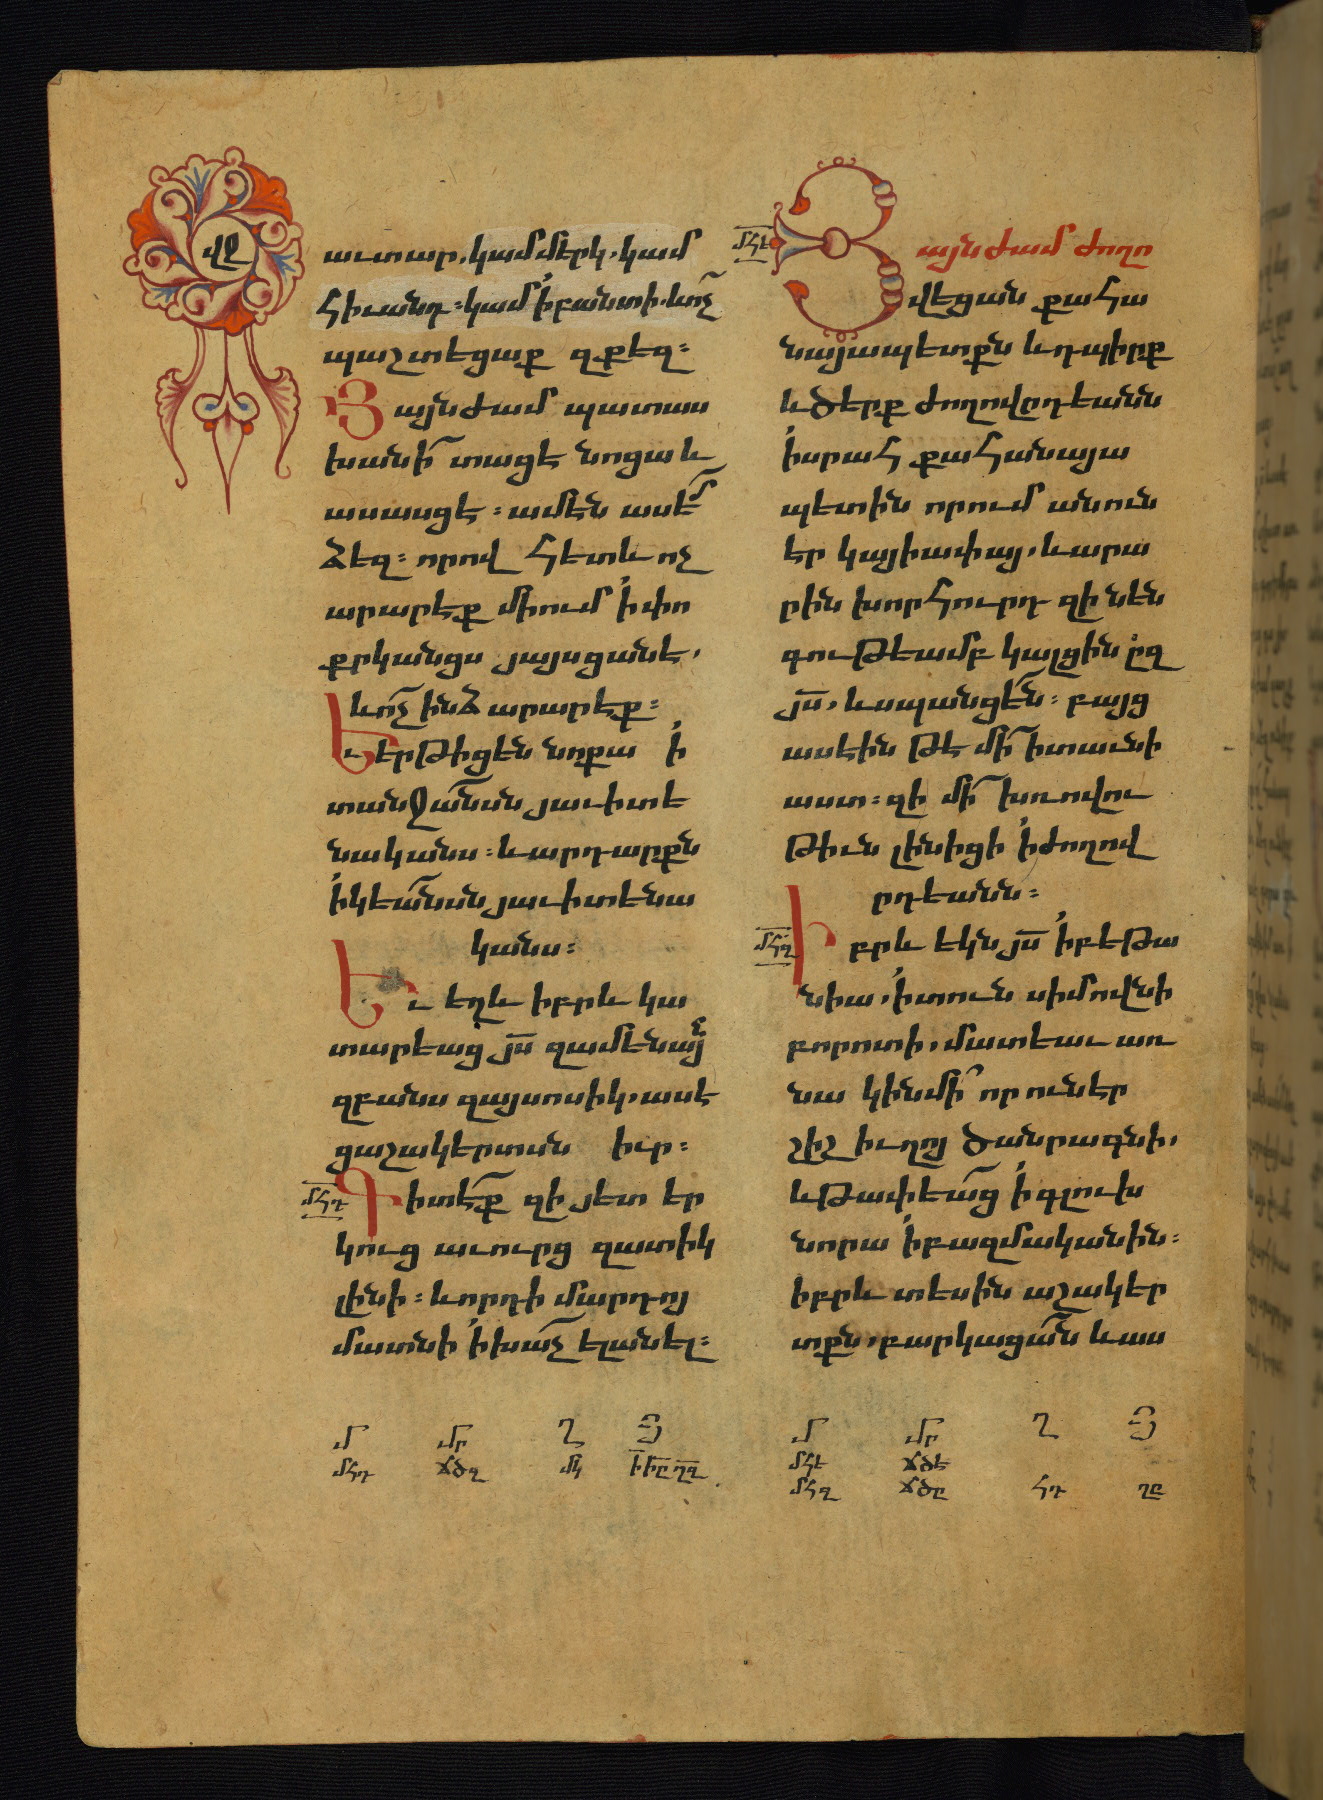 վջ
աւտար. կամ մերկ. կամ
հիւանդ։ կամ ի բանտի. և ոչ
պաշտեցաք զքեզ։
Յայնժամ պատաս
խանի տացէ նոցա և
ասասցէ։ ամէն ասեմ
ձեզ։ որով հետև ոչ
արարեք միում ի փո
քրկանցս յայսցանե,
և ոչ ինձ արարեք։
Եւ երթիցեն նոքա ի
տանջանսն յաւիտե
նականս։ և արդարքն
ի կեանսն յաւիտենա
կանս։
Եւ եղև իբրև կա
տարեաց յս զամենայն
զբանս զայսոսիկ. ասե
ցաշակերտսն իւր։
մհդ
Գիտէք զի յետ եր
կուց աւուրց զատիկ
լինի։ և որդի մարդոյ
մատնի ի խաչ ելանել։
մհե
Յայնժամ ժողո
վեցան քահա
նայապետքն և դպիրք
և ծերք ժողովըդեանն
ի սրահ քահանայա
պետին որում անուն
էր կայիափայ. և արա
րին խորհուրդ զի նեն
գութեամբ կալցին ըզ
յս. և սպանցեն։ բայց
ասեին թե մի ի տաւնի
աստ։ զի մի խռովու
թիւն լինիցի ի ժողով
ըդեանն։
մհզ
Իբրև եկն յս ի բեթա
նիա. ի տուն սիմովնի
բորոտի. մատեաւ առ
նա կին մի որ ունէր
շիշ իւղոյ ծանրագնի.
և թափեաց ի գլուխ
նորա ի բազմականին։
իբրև տեսին աշակեր
տքն. բարկացան և աս
մ մր ղ յ
մհդ ճծզ մկ
մ մր ղ յ
մհե ճծե
մհզ ճծը հդ ղը